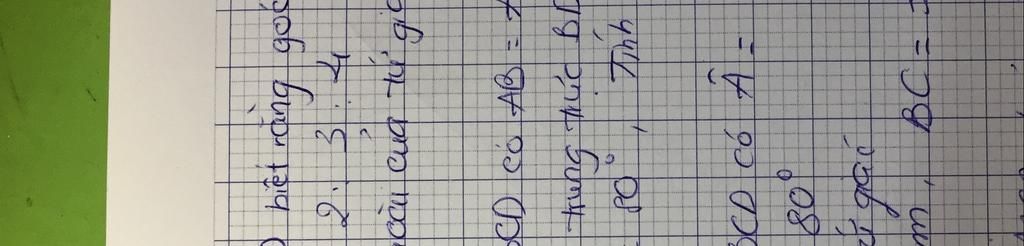 biết rằng góc
2 : 3 : 4
của tứ giác
BCD có AB =
trung trực BD
80°, Tính
BCD có Â =
80°
tứ giác
m, BC =